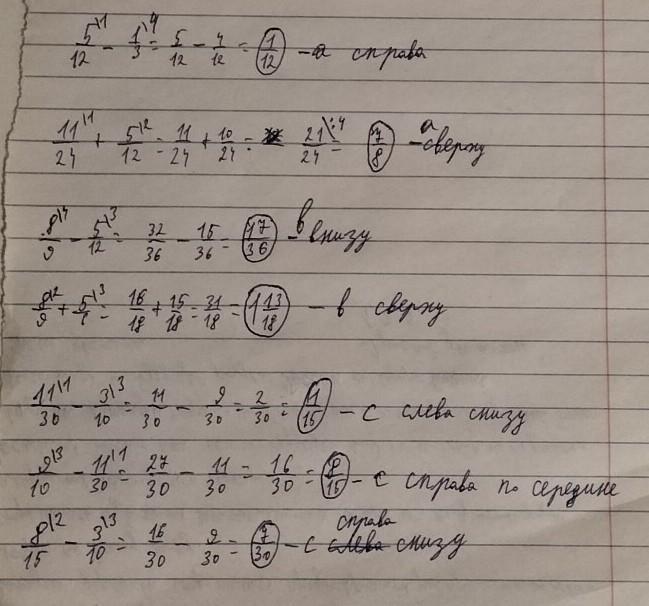 5\1/12 - 1\4/3 = 5/12 - 4/12 = 1/12 - а справа
11\1/24 + 5\2/12 = 11/24 + 10/24 = 21\:4/24 = 7/8 - а сверху
8\4/9 - 5\3/12 = 32/36 - 15/36 = 17/36 - в внизу
8\2/9 + 5\3/ = 16/18 + 15/18 = 31/18 = 1 13/18 - в сверху
11\1/30 - 3\3/10 = 11/30 - 9/30 = 2/30 = 1/15 - с слева снизу
9\3/10 - 11\1/30 = 27/30 - 11/30 = 16/30 = 8/15 - с справа по середине
8\2/15 - 3\3/10 = 16/30 - 9/30 = 7/30 - с справа снизу